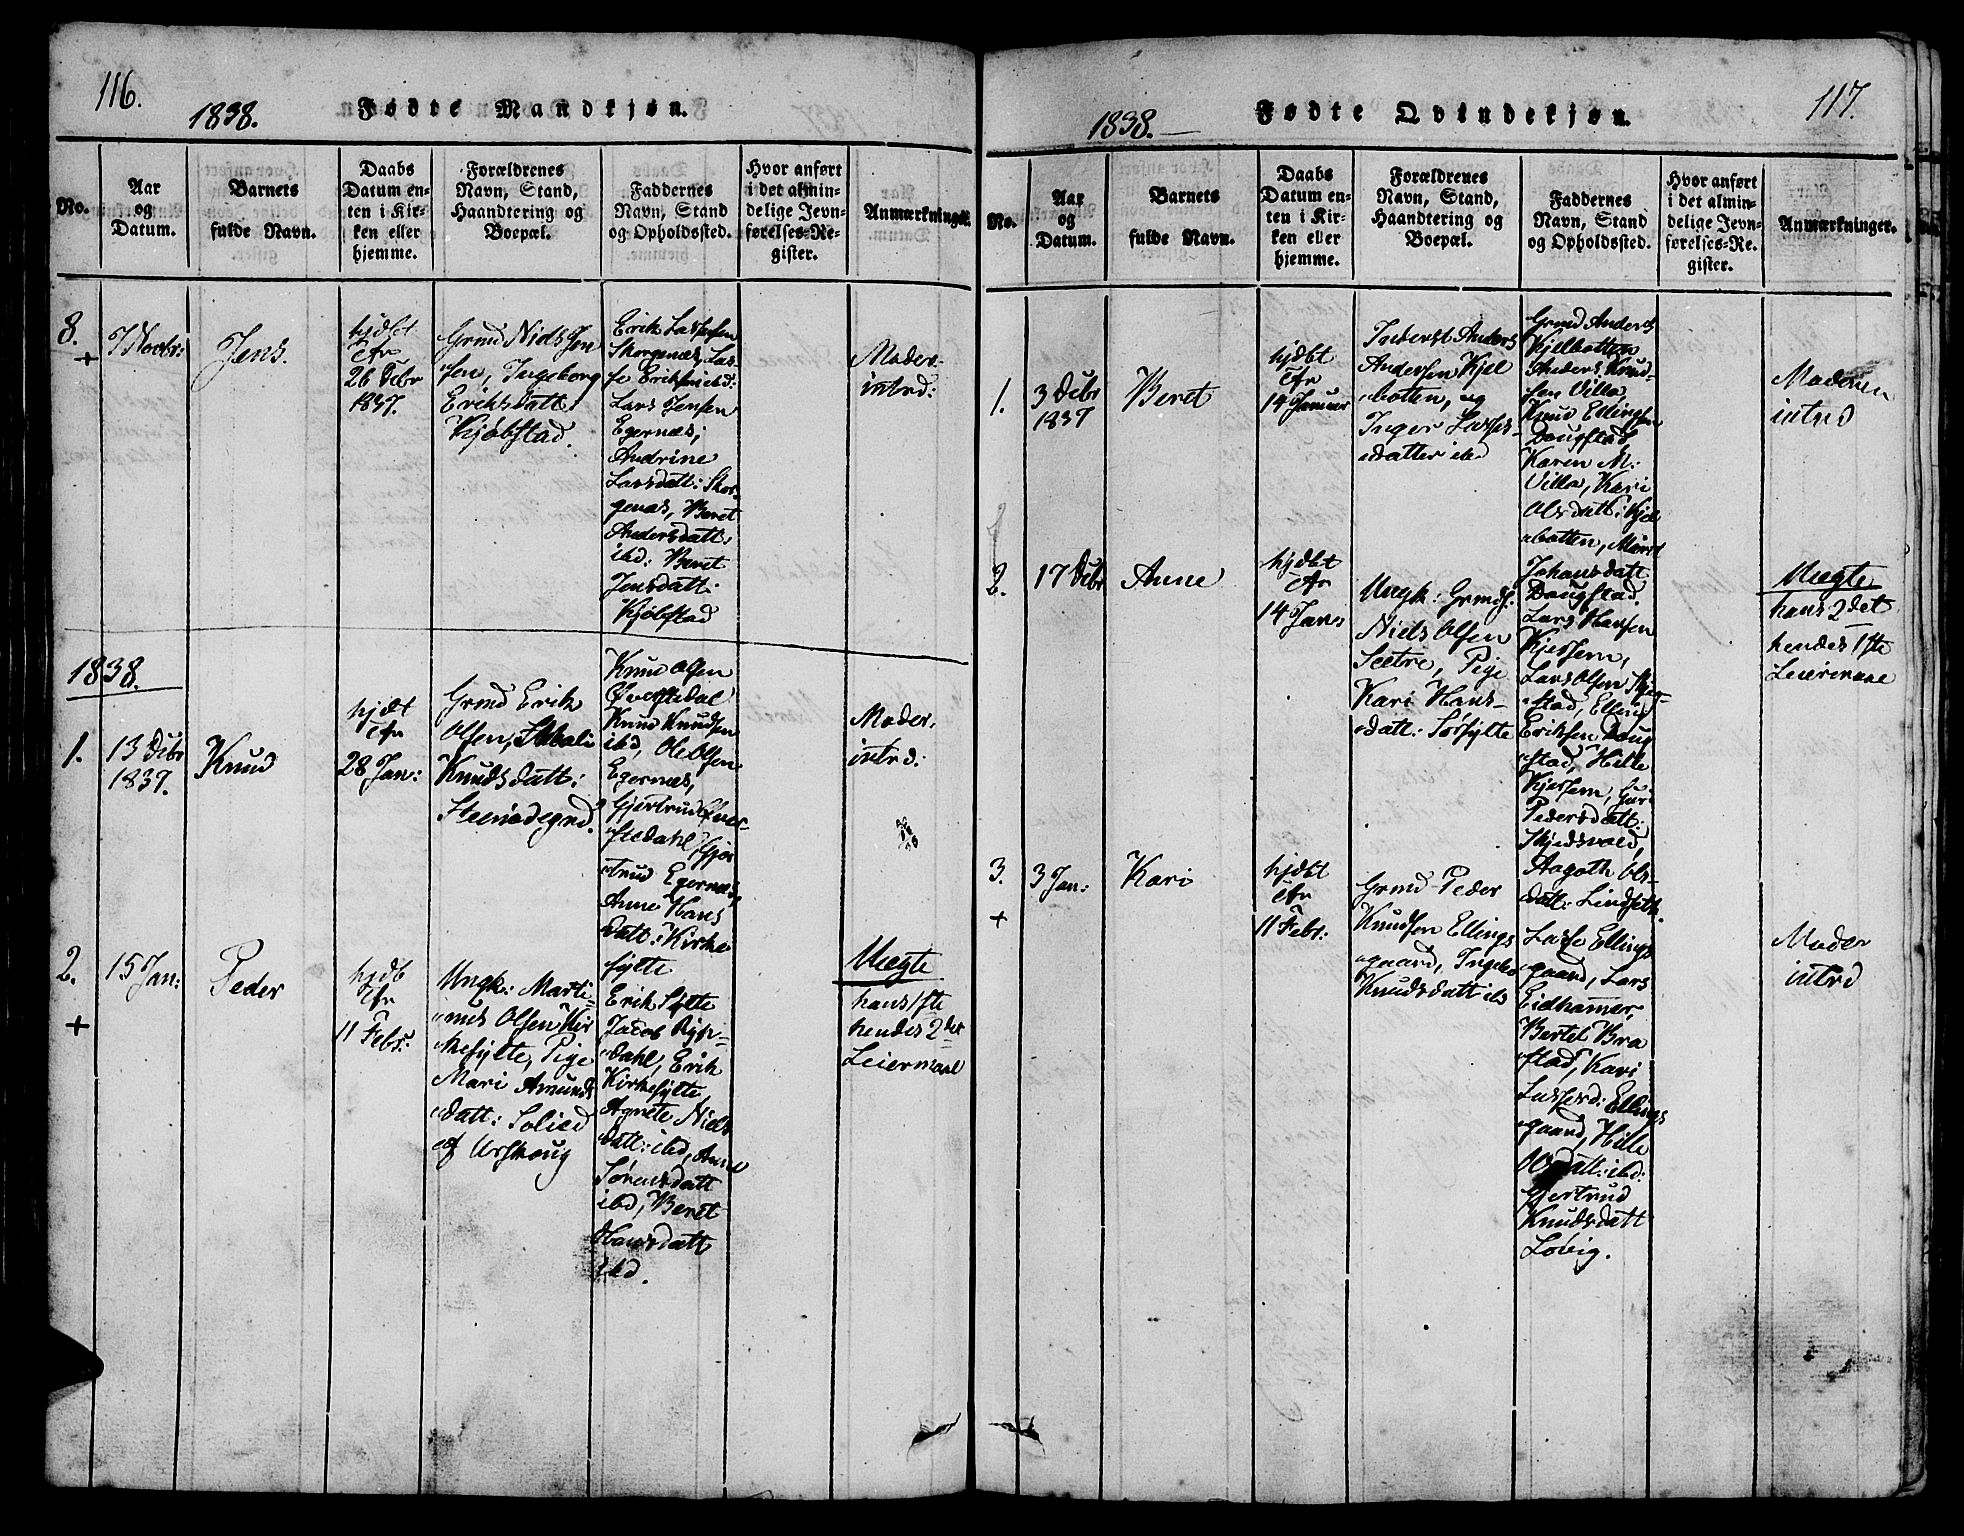 116.
1838.
Fødte Mandkjøn.
No.
Aar
og
Datum.
Barnets
fulde Navn.
Daabs
Datum en-
ten i Kir-
ken eller
hjemme.
Forældrenes
Navn, Stand,
Haandtering og
Boepæl.
Faddernes
Navn, Stand
og Opholdssted.
Hvor anført
i det almin-
delige Jevn-
førelses-Re-
gister.
Anmærkninger.
8.
+
7 Novbr:
Jens.
hjdbt
Cfr
26 Debr
1837.
Grmd Niels Jen
sen, Ingeborg
Eriksdatt:
Kjøbstad.
Erik Lassesen
Skorgenæs, Las-
se Eriksen ibd:
Lars Jensen
Egernæs,
Andrine
Larsdatt: Skor-
genæs, Beret
Andersdatt:
ibd: Beret
Jensdatt:
Kjøbstad
Moder:
intrd:
1838.
1.
13 Debr
1837.
Knud
hjdt
Cfr
28 Jan:
Grmd Erik
Olsen,
Knudsdatt:
Knud Olsen
Øverstedal
Knud Knudsen
ibd, Ole Olsen
Egernæs,
Gjertrud Øver-
stedahl, Gjer
trud Egernæs,
Anne Hans
datt: Kirke
fylte
Moder.
intrd:
2.
+
15 Jan:
Peder
hjdb
Cfr
11 Febr:
Ungk: Marti-
nus Olsen Kir
kefylte, Pige
Mari Amunds
datt: Solied
af Urskoug
Erik Søfte
Jacob
dahl, Erik
Kirkefylte
Agnete Niels
datt: ibd, Anne
Sørensdatt
ibd, Beret
Hansdatt
ibd.
Uægte
hans 1ste
hendes 2det
Leiermaal
117.
1838.
Fødte Qvindekjøn.
No.
Aar
og
Datum.
Barnets
fulde Navn.
Daabs
Datum en-
ten i Kir-
ken eller
hjemme.
Forældrenes
Navn, Stand,
Haandtering og
Boepæl.
Faddernes
Navn, Stand
og Opholdssted.
Hvor anført
i det almin-
delige Jevn-
førelses-Re-
gister.
Anmærkninger.
1.
3 Debr
1837
Beret
hjdbt
Cfr
14 Januar
Inderst Anders
Andersen Kjel
botten, og
Inger Lasses-
datter ibd
Grmd Anders
Kjelbotten
Anders Knud-
sen Villa,
Knud Ellingsen
Dougstad,
Karen M:
Villa, Kari
Olsdatt: Kjel
botten, Marit
Johansdatt
Dougstad.
Moderen
intrd
2.
17 Debr
Anne
hjdbt
Cfr
14 Jan:
Ungk: Grmds:
Niels Olsen
Sectre, Pige
Kari Hans-
datt: Sørfylte
Lars Hansen
Kjersem,
Lars Olsen Skjer-
stad, Elling
Eriksen Doug
stad, Hille
Kjersem, Guri
Pedersdatt:
Skjedsvold,
Aagoth Ols-
datt: Lindseth.
Uægte
hans 2det
hendes 1ste
Leiermaal
3.
+
3 Jan:
Kari
hjdbt
Cfr
11 Febr:
Grmd Peder
Knudsen Ellings
gaard, Ingebor
Knudsdatt ibd
Lasse Ellings
gaard, Lars
Eidhamer,
Bertel Bra
stad, Kari
Lassesd: Ellings
gaard, Hille
datt: ibd:
Gjertrud
Knudsdatt
Lovig.
Moder
intrd